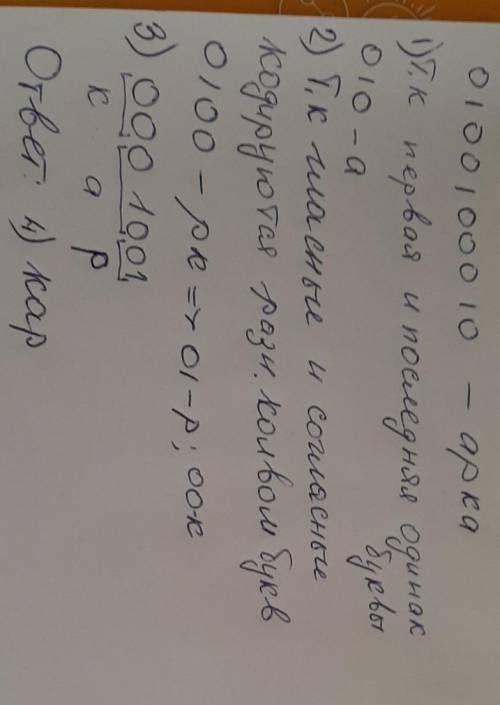 0100100010 - арка
1) Т.к первая и последняя одинак
буквы
010 - а
2) Т.к гласные и согласные
кодируются разн. колвом букв
0100 - рк => 01-р; 00к
3) 000 1001
к а р
Ответ: 4) кар